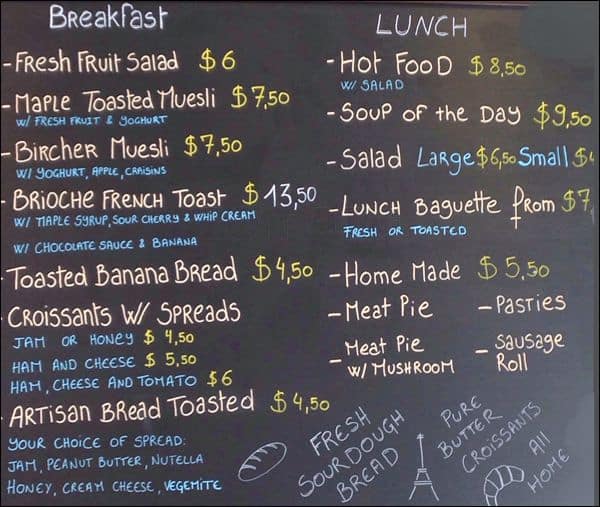 Breakfast
- Fresh Fruit Salad $6
- Maple Toasted Muesli $7,50
w/ FRESH FRUIT & YOGHURT
- Bircher Muesli $7,50
w/ YOGHURT, APPLE, CRAISINS
- BRIOCHE FRENCH TOAST $13,50
w/ MAPLE SYRUP, SOUR CHERRY & WHIP CREAM
w/ CHOCOLATE SAUCE & BANANA
Toasted Banana Bread $4,50
CROISSANTS W/ SPREADS
JAM OR HONEY $4,50
HAM AND CHEESE $5,50
HAM, CHEESE AND TOMATO $6
ARTISAN BREAD TOASTED $4,50
YOUR CHOICE OF SPREAD:
JAM, PEANUT BUTTER, NUTELLA
HONEY, CREAM CHEESE, VEGEMITE
LUNCH
- HOT FOOD $8,50
W/ SALAD
- SOUP OF THE DAY $9,50
- Salad Large $6,50 Small $4
- LUNCH Baguette from $7,
FRESH OR TOASTED
- Home Made $5,50
- Meat Pie
- PASTIES
- Meat Pie
W/ MUSHROOM
- SAUSAGE
Roll
FRESH
SOURDOUGH
BREAD
PURE
BUTTER
CROISSANTS
All
HOME